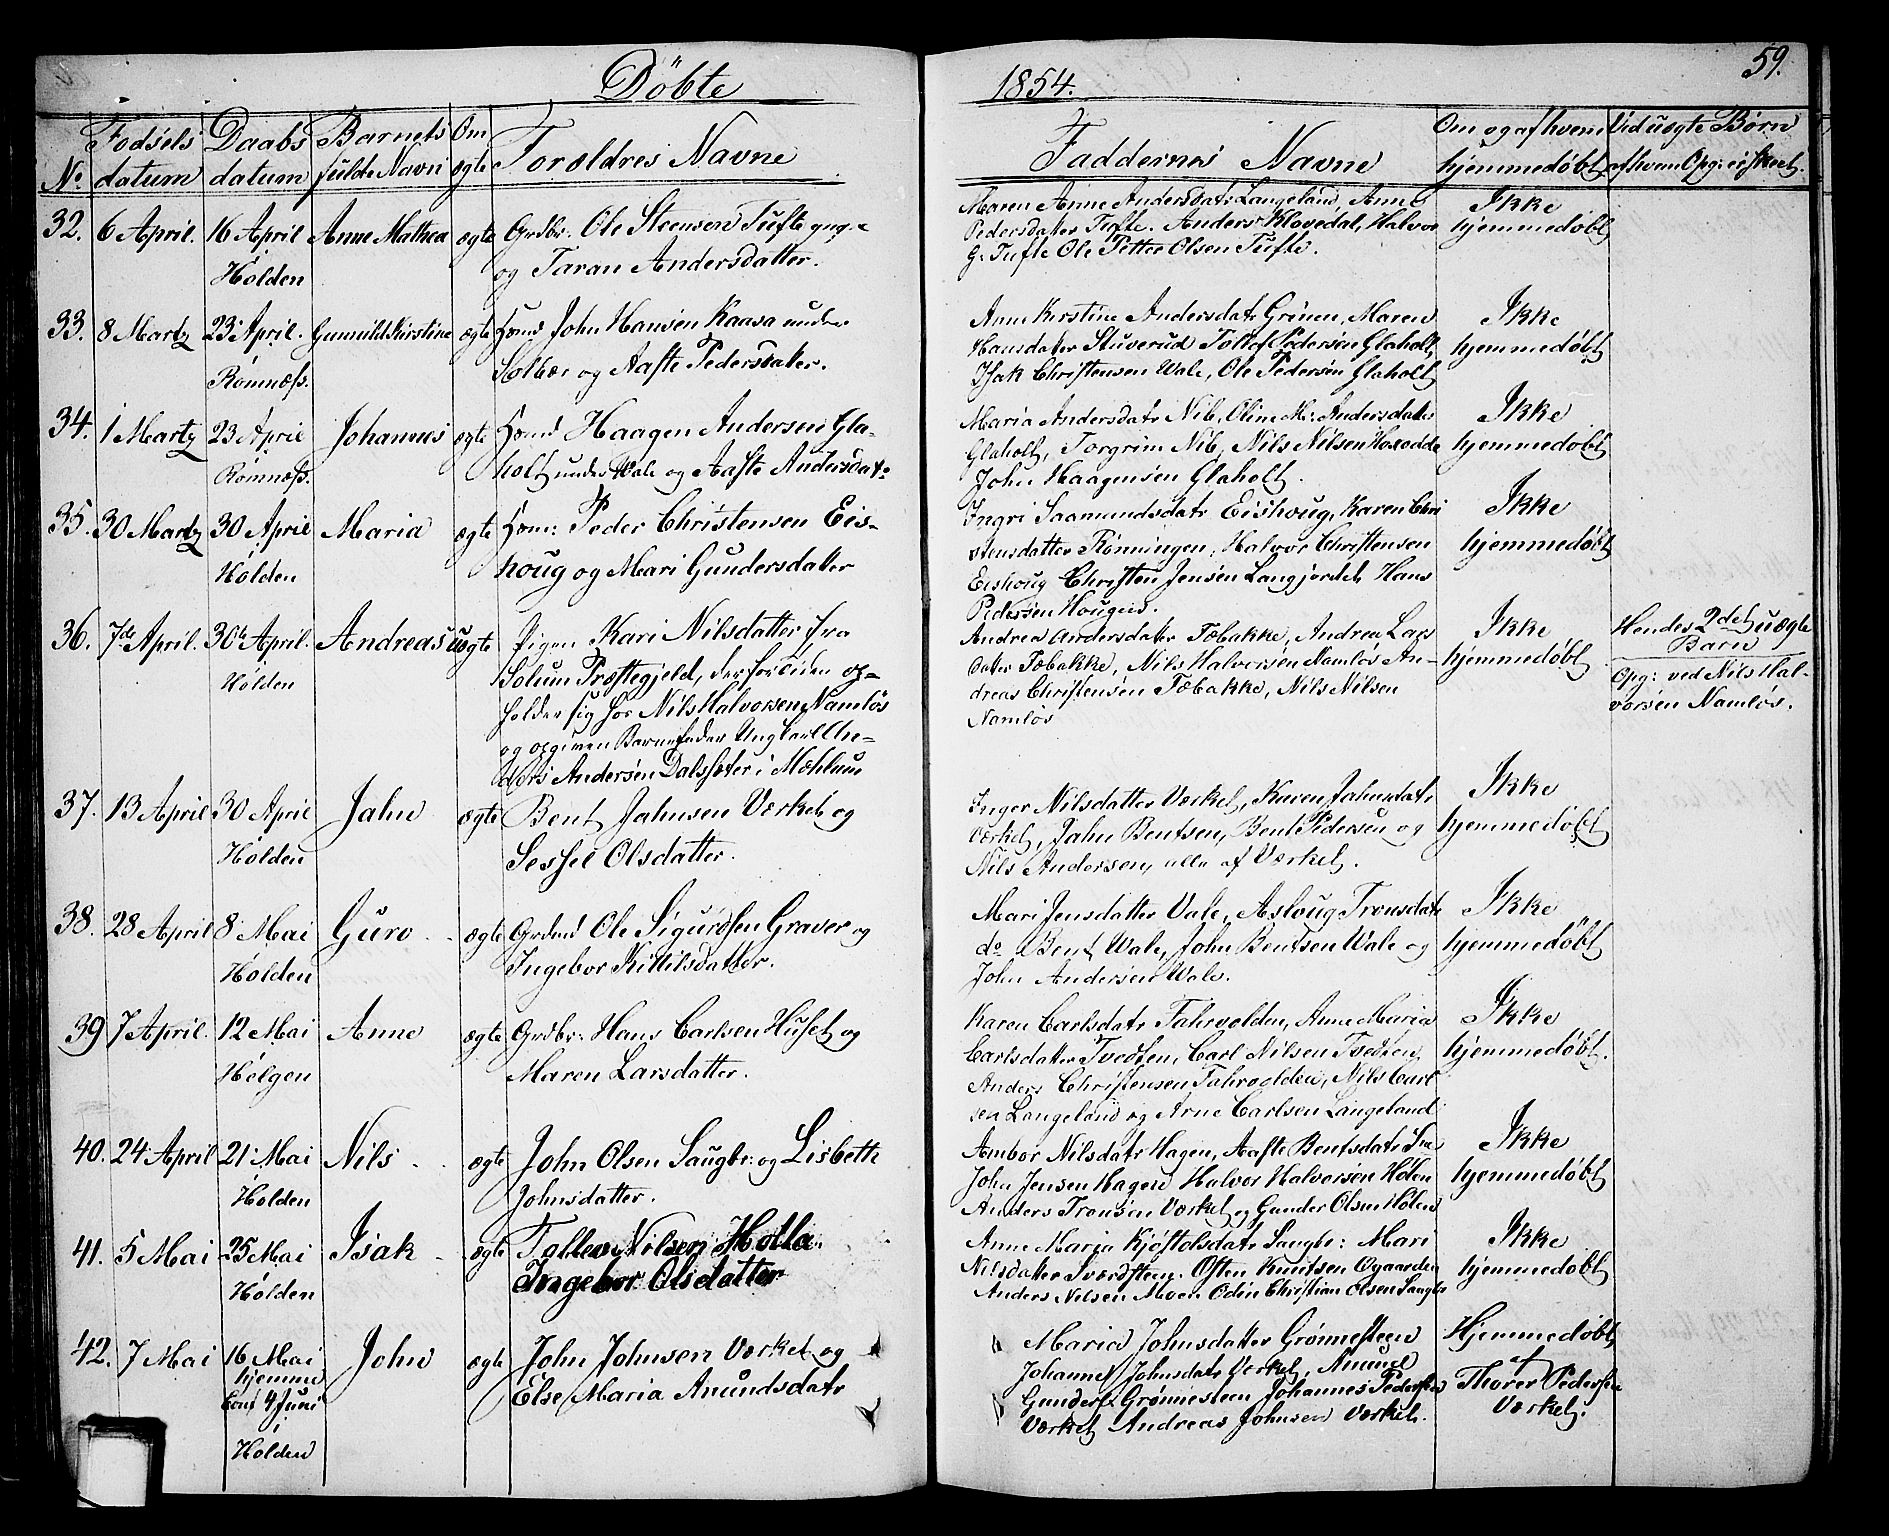 Döbte
1854.
59.
No
Fødsels datum
Daabs datum
Barnets fulde Navn
Om ægte
Forældres Navne
Faddernes Navne
Om og af hvem hjemmedøbt
Ved uægte Børn af hvem Opg: er skeet.
32. 6 April. 16 April Holden Anne Mathea ægte
Grdbr: Ole Steensen Tufte
og Taran Andersdatter.
Maren Anne Andersdatr Langeland, Anne
Pedersdatter Tufte. Anders Klovedal, Halvor
G. Tufte Ole Petter Olsen Tufte.
Ikke
hjemmedøbt
33. 8 Martz 23 April. Romnæss. Gunnild Kirstine ægte
Huusmd John Hansen Kaasa under
Solbær og Aaste Pedersdatter.
Anne Kirstine Andersdatr Grinen, Maren
Hansdatter Stuverud Tollof Pedersen Glaholt,
Isak Christensen Wale, Ole Pedersen Glaholt
Ikke
hjemmedøbt
34. 1 Martz 23 April Romnæss. Johannes ægte
Huusmd Haagen Andersen Gla-
holt under Wale og Aaste Andersdatr
Maria Andersdatr Nib, Oline M: Andersdatter
Glaholt, Torgrim Nib, Nils Nilsen
John Haagensen Glaholt.
Ikke
hjemmedøbt
35. 30 Martz 30 April Holden Maria ægte
Huusm: Peder Christensen Eis-
houg og Mari Gundersdatter
Ingri Saamundsdatr Eishoug, Karen Chri
stensdatter Rønningen, Halvor Christensen
Eishoug Christen Jensen Langjordet Hans
Pedersen Hougen.
Ikke
hjemmedøbt
36. 7de April. 30te April. Holden Andreas uægte
Pigen Kari Nilsdatter fra
Solum Præstegjeld, der for tiden op-
holder sig hos Nils Halvorsen Namløs
og opgiven Barnefader Ungkarl An-
ders Andersen Dalssæter i Mæhlum
Andrea Andersdatter Tæbakke, Andrea Lars
datter Tæbakke, Nils Halvorsen Namløs An-
dreas Christensen Tæbakke, Nils Nilsen
Namløs
Ikke
hjemmedøbt
Hendes 2det uægte
Barn
Opg: ved Nils Hal-
vorsen Namløs.
37. 13 April 30 April Holden Jahn ægte
Bent Jahnsen Værket og
Sessel Olsdatter.
Inger Nilsdatter Værket, Karen Jahnsdatr
Værket, Jahn Bentsen, Bent Pedersen og
Nils Andersen, alle af Værket.
Ikke
hjemmedøbt
38. 28 April 8 Mai Holden Guro ægte
Grdmd Ole Sigurdsen Graver og
Ingebor Kittilsdatter.
Mari Jensdatter Vale, Asloug Tronsdatr
do Bent Wale, John Bentsen Wale og
John Andersen Wale.
Ikke
hjemmedøbt
39 7 April. 12 Mai Helgen Anne ægte
Grdbr: Hans Carlsen Huset og
Maren Larsdatter.
Karen Carlsdatr Fahrvolden, Anne Maria
Carlsdatter Tvedten, Carl Nilsen Tvedten,
Anders Christensen Fahrvolden, Nils Carl
sen Langeland og Arne Carlsen Langeland
Ikke
hjemmedøbt.
40. 24 April 21 Mai Holden Nils ægte
John Olsen Saugbr: og Lisbeth
Johnsdatter.
Ambor Nilsdatr Hagen, Aaste Bentsdatr
John Jensen Hagen Halvor Halvorsen Holen
Anders Tronsen Værket og Gunder Olsen Holen
Ikke
hjemmedøbt
41. 5 Mai 25 Mai Holden Isak ægte
Tallev Nilsen Holla
Ingebor Olsdatter
Anne Maria Kjøstolsdatr Saugbr: Mari
Nilsdatter Sværdsteen. Osten Knutsen Ogaarden
Anders Nilsen Moen Odin Christian Olsen Saugbr
Ikke
hjemmedøbt
42. 7 Mai 16 Mai hjemme Conf 4 Juni i Holden John ægte
John Johnsen Værket og
Else Maria Amundsdatr
Maria Johnsdatter Grønnesteen
Johanne Johnsdatr Værket, Amund
Gunders Grønnesteen Johannes Pedersen
Værket Andreas Johnsen Værket.
Hjemmedøbt
af
Thorer Pedersen
Værket.